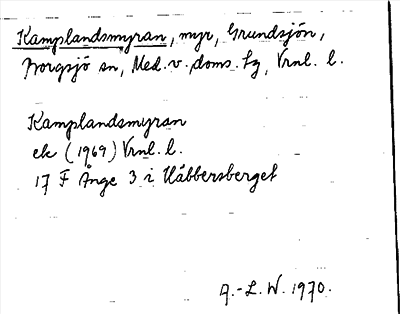 Kamplandsmyran, myr, Grundsjön,
Borgsjö sn, Med. v. doms. fg, Vrnl. l.
Kamplandsmyran
ek (1969) Vrnl. l.
17 F Ånge 3 i Håbbersberget
A.-L. W. 1970.